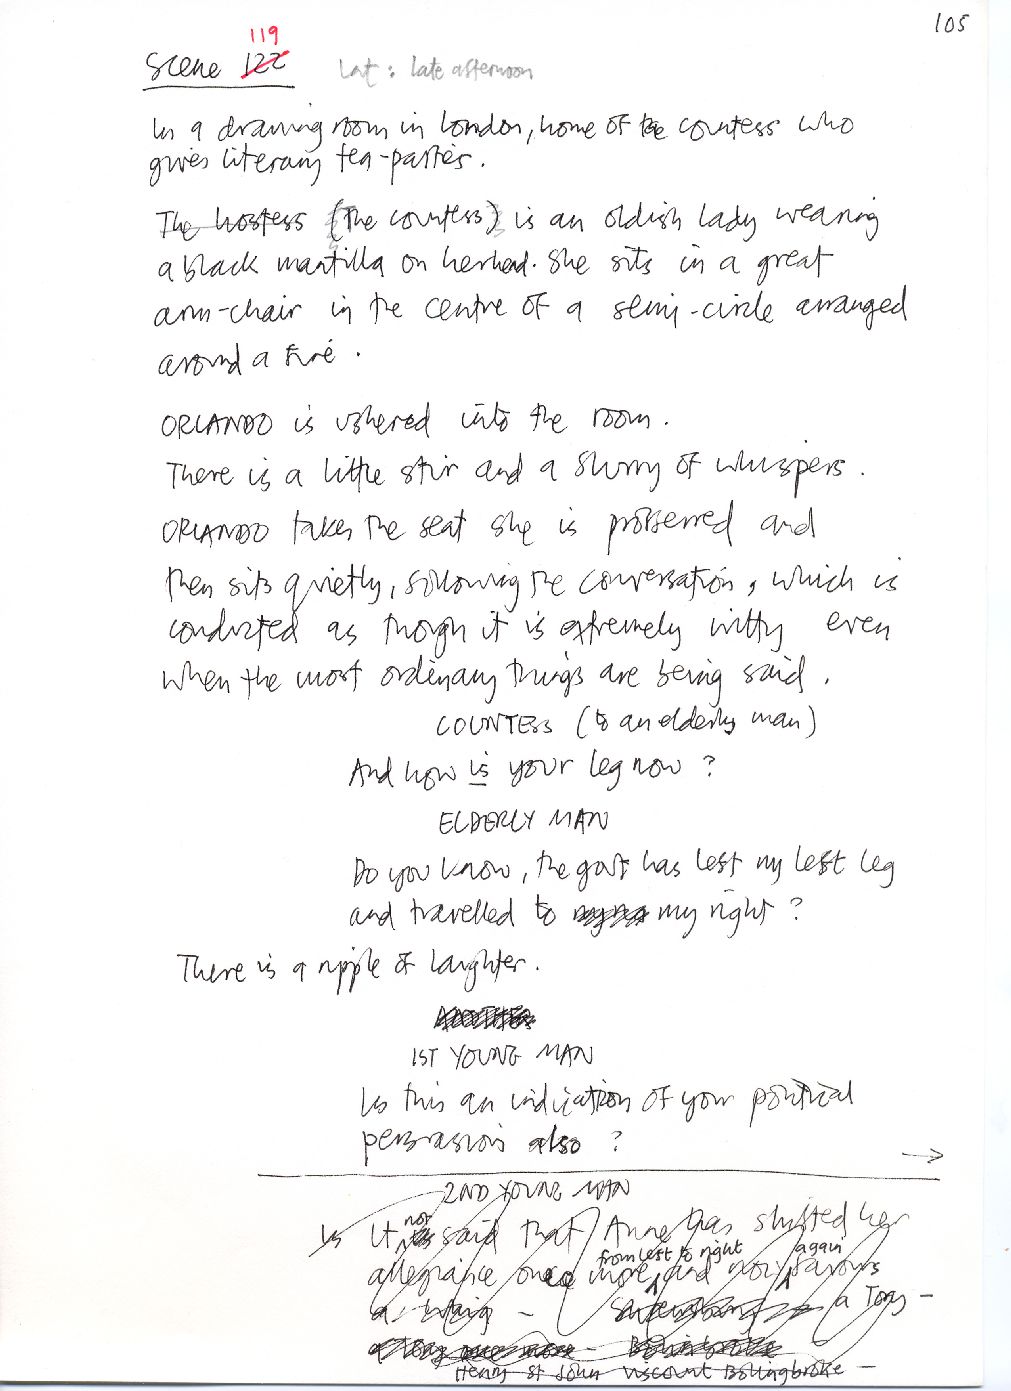 105
119
Scene 122
Int : late afternoon
In a drawing room in London, home of the countess who
gives literary tea-parties.
The hostess (The countess) is an oldish lady wearing
a black mantilla on her head. She sits in a great
arm-chair in the centre of a semi-circle arranged
around a fire.
ORLANDO is ushered into the room.
There is a little stir and a flurry of whispers.
ORLANDO takes the seat she is profferred and
then sits quietly, following the conversation, which is
conducted as though it is extremely witty even
when the most ordinary things are being said.
COUNTESS (to an elderly man)
And how is your leg now ?
ELDERLY MAN
Do you know, the gout has left my left leg
and travelled to my right ?
There is a ripple of laughter.
1ST YOUNG MAN
Is this an indication of your political
persuasion also ?
→
2ND YOUNG MAN
Is It not said that Anne has shifted her
from left to right again
allegiance once more, and now favours
a - a Tory -
Henry St John Viscount Bolingbroke -